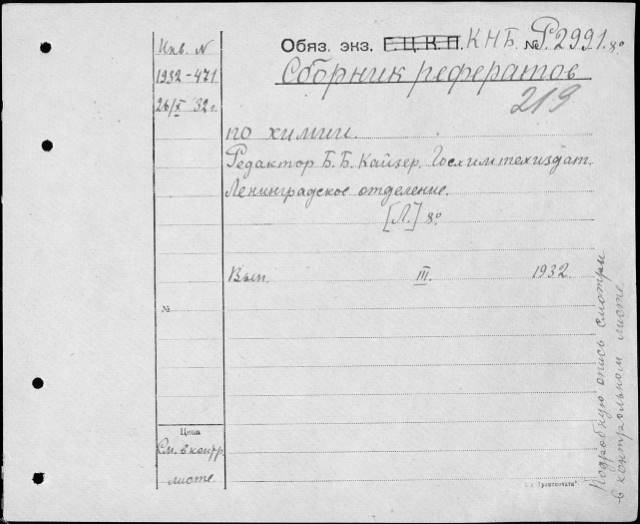 Инв. N
1932-471
26/X 32 г.
Обяз. экз. Г.Ц.К.П. КНБ. № Р2991. 8°
Сборник рефератов
219
по химии.
Редактор Б. Б. Кайзер. Госхимтехиздат.
Ленинградское отделение.
[Л.] 8°
Вып. III. 1932
№
Цена
См. в контр.
листе
Подробную опись смотри
в контрольном листе.